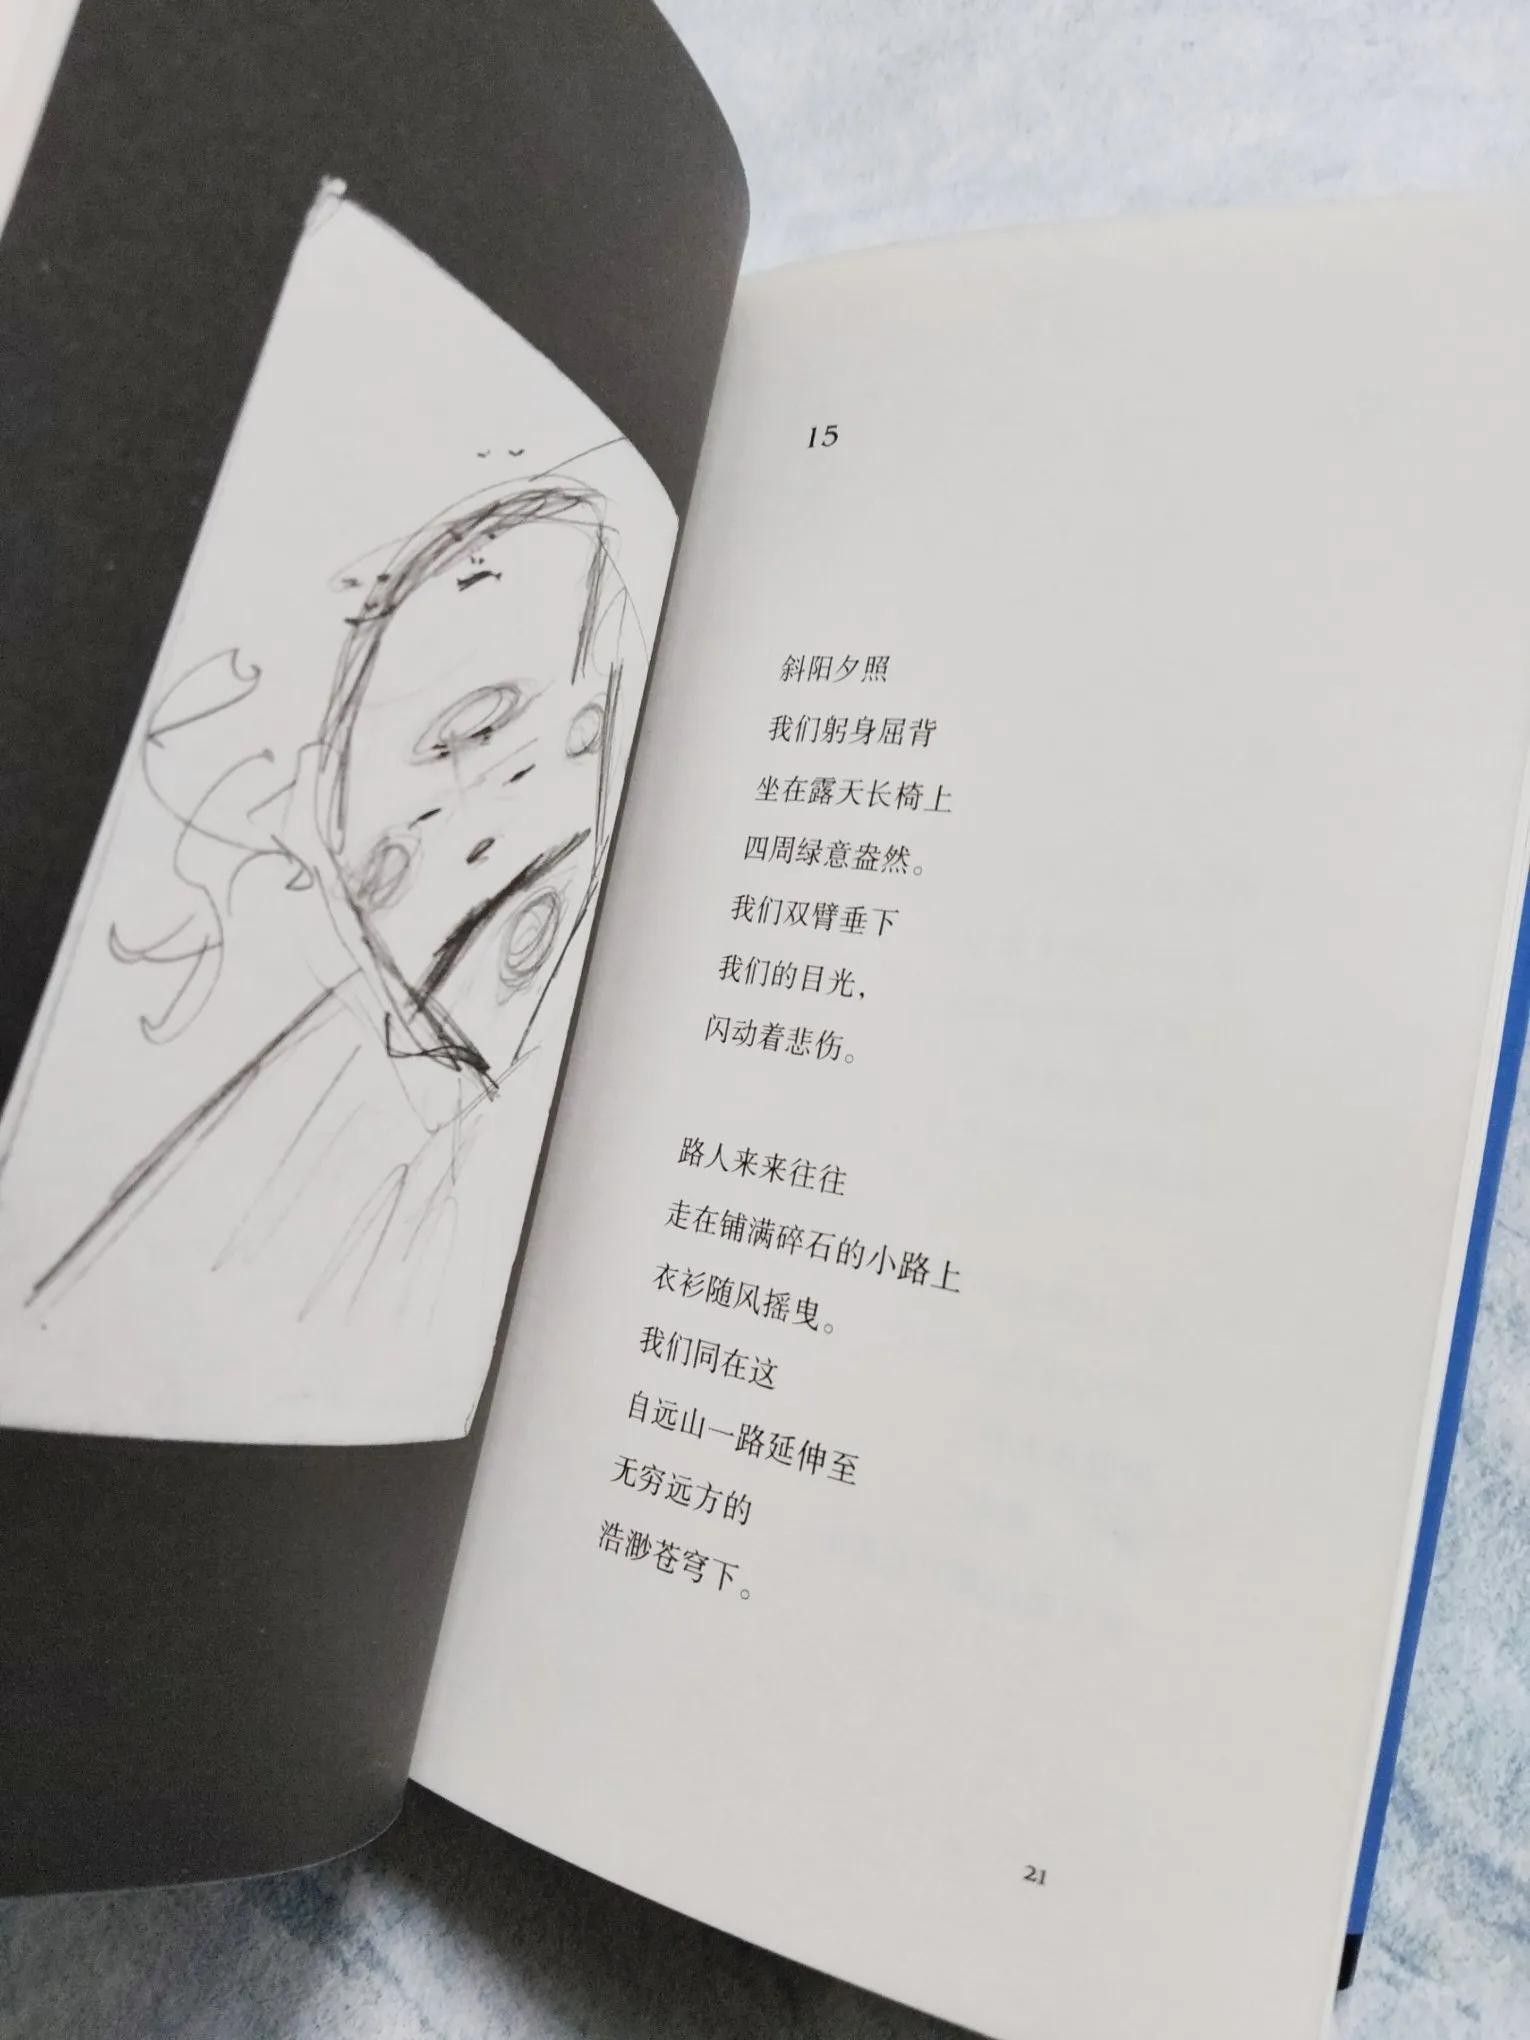 15
斜阳夕照
我们躬身屈背
坐在露天长椅上
四周绿意盎然。
我们双臂垂下
我们的目光，
闪动着悲伤。
路人来来往往
走在铺满碎石的小路上
衣衫随风摇曳。
我们同在这
自远山一路延伸至
无穷远方的
浩渺苍穹下。
21